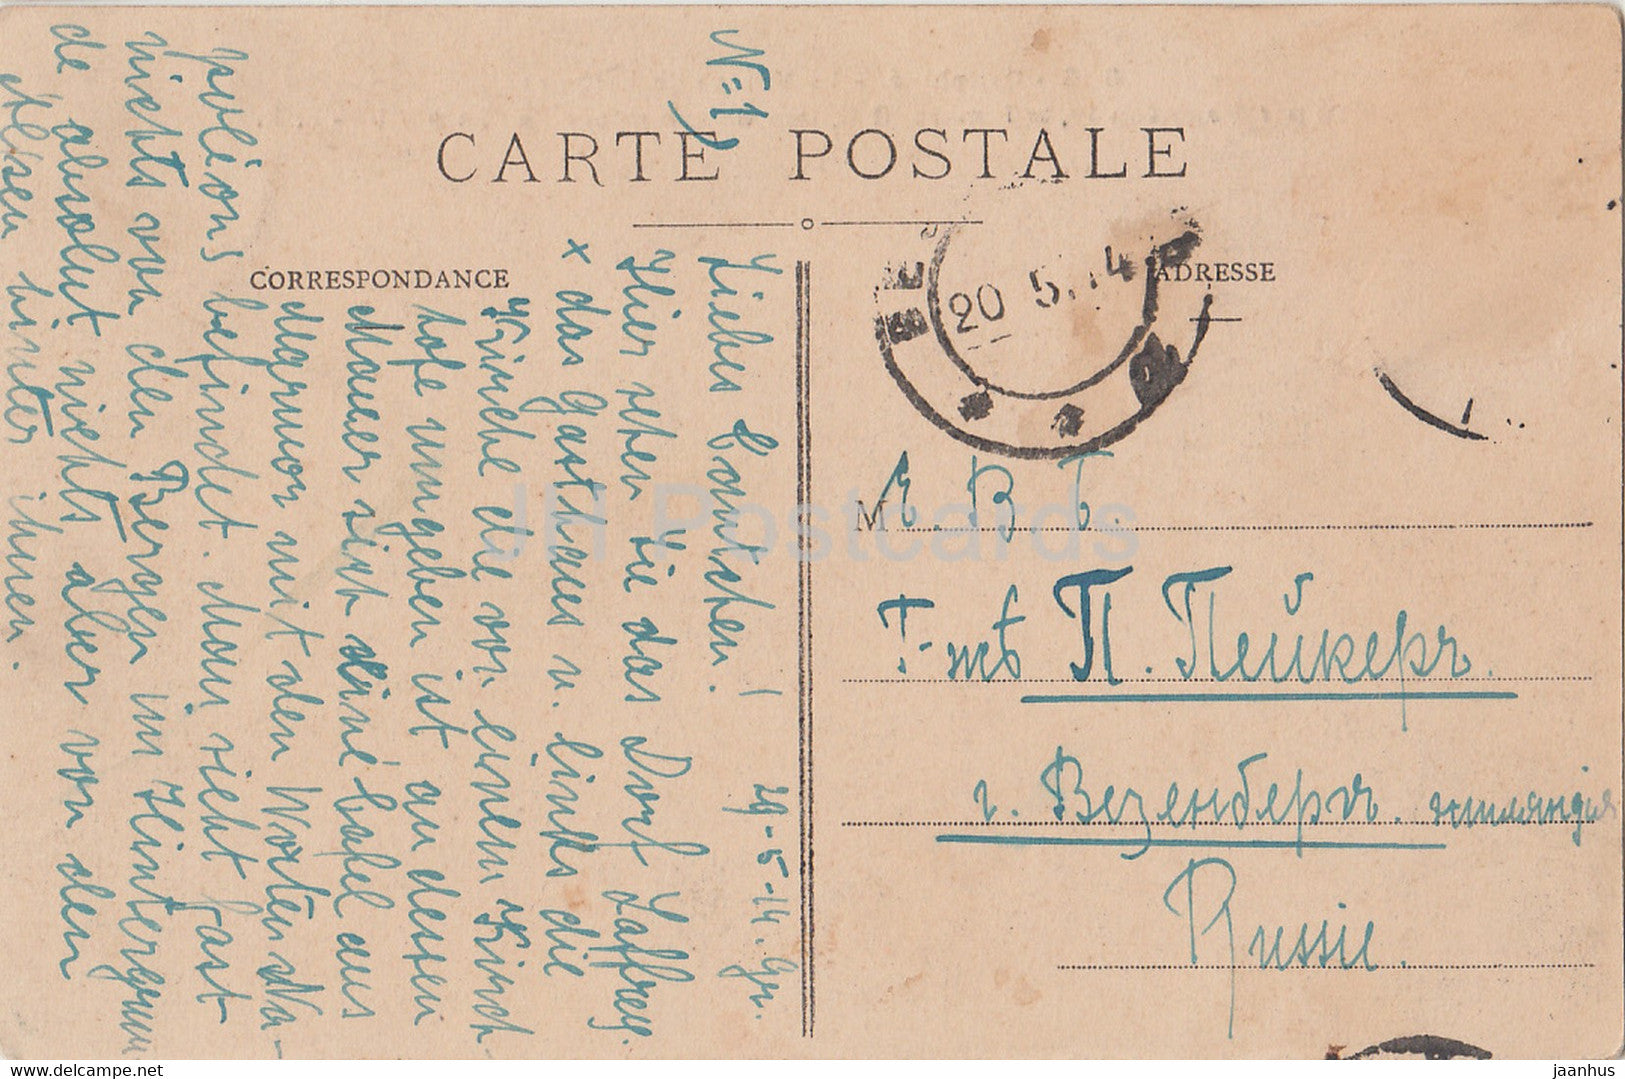 CARTE POSTALE
CORRESPONDANCE
ADRESSE
No 1
29-5-14. Gr.
Liebes Cantchen!
Hier sehen Sie das Dorf Laffrey.
x das Gasthaus u. links die
Kirche die von einem Kirch-
hofe umgeben ist an dessen
Mauer sich eine Tafel aus
Marmor mit den Worten Na-
poleons befindet. Man sieht fast
nichts von den Bergen im Hintergrun
de absolut nichts, aber von den
Seen hinter ihnen.
20 5.14
M
Е. В. Б.
Г-жѣ П. Пейкеръ.
г. Везенбергъ. Эстляндія
Russie.
JH Postcards
delcampe.net
jaanhus